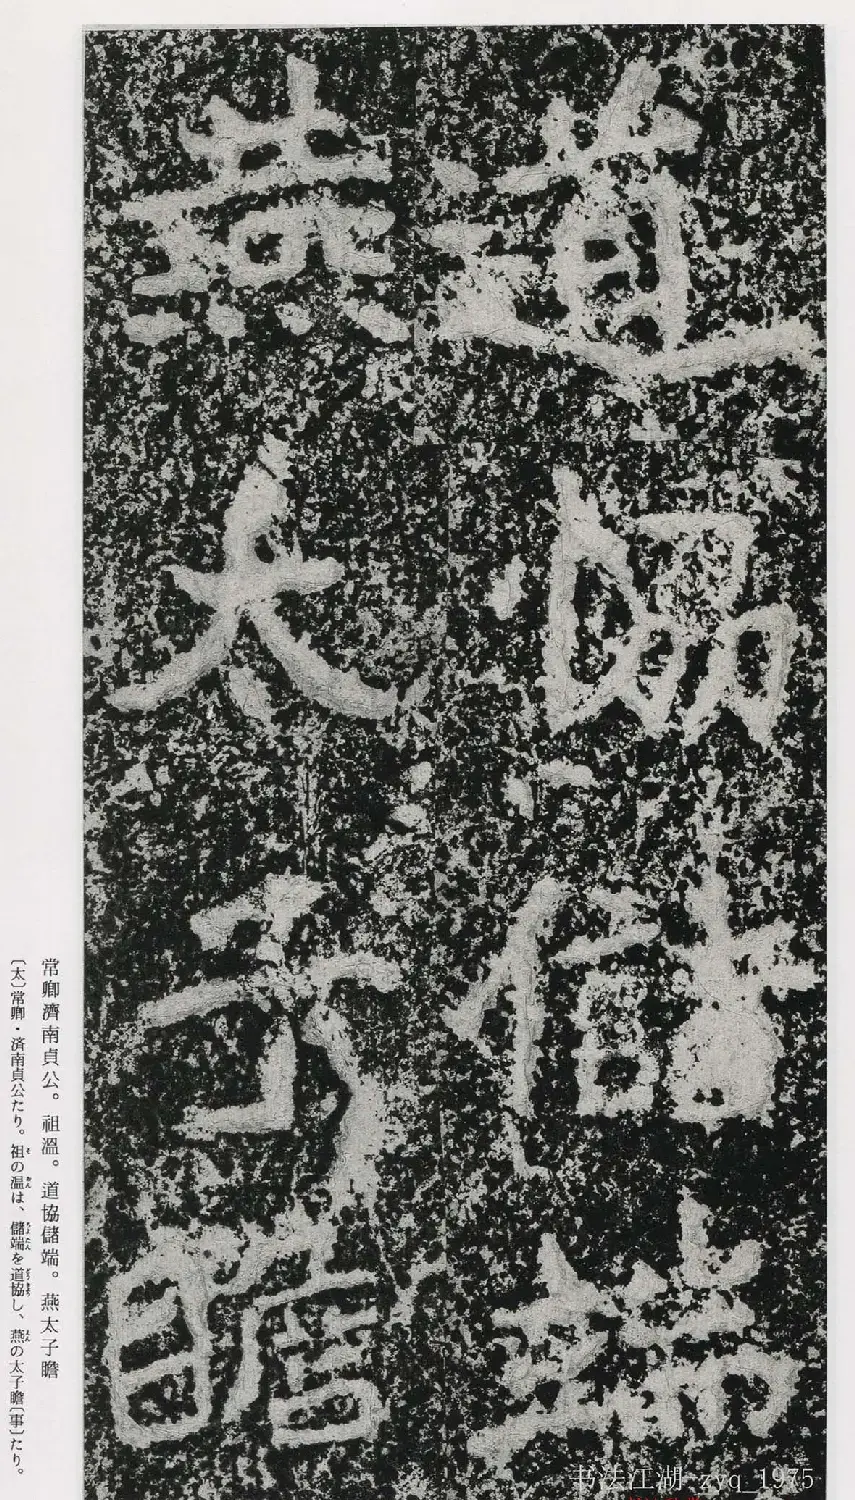 道協儲端
燕太子瞻
常卿濟南貞公。祖溫。道協儲端。燕太子瞻
〔太〕常卿・済南貞公たり。祖の温は、儲端を道協し、燕の太子瞻〔事〕たり。
书法江湖 zyq_1975